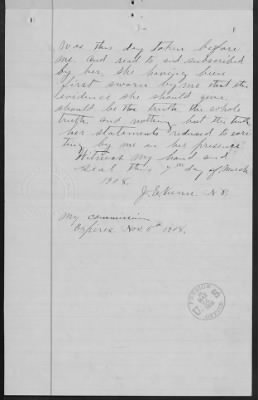 Was this day taken before
me, and read to, and subscribed
by her, she having been
first sworn by me that the
evidence she should give,
should be the truth the whole
truth and nothing but the truth
her statements reduced to wri
ting by me in her presence
Witness my hand and
seal this 7th day of March
1908.
N.P.
My commission
Expires Nov. 1908.